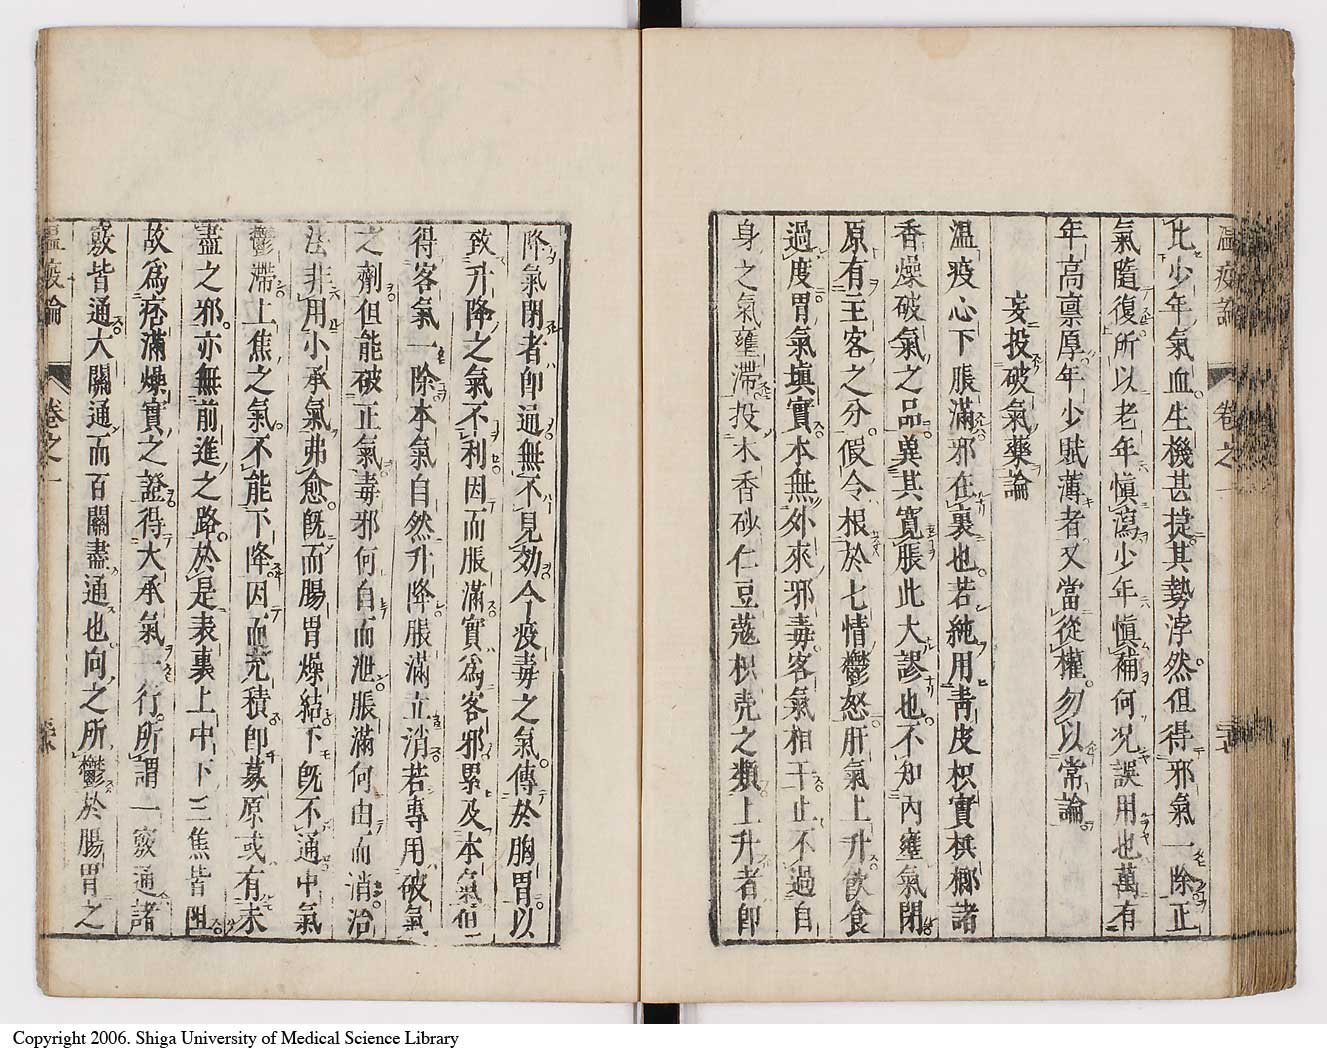 温疫論 卷之一
比少年氣血生機甚捷其勢浡然但得邪氣一除正
氣隨復所以老年愼瀉少年愼補何况誤用也萬有
年高禀厚年少賦薄者又當從權勿以常論
妄投破氣藥論
溫疫心下脹滿邪在裏也若純用靑皮枳實檳榔諸
香燥破氣之品兾其寬脹此大謬也不知內壅氣閉
原有主客之分假令根於七情鬱怒肝氣上升飮食
過度胃氣塡實本無外來邪毒客氣相干止不過自
身之氣壅滯投木香砂仁豆蔻枳壳之類上升者卽
降氣閉者卽通無不見効今疫毒之氣傳於胸胃以
致升降之氣不利因而脹滿實爲客邪累及本氣但
得客氣一除本氣自然升降脹滿立消若專用破氣
之劑但能破正氣毒邪何自而泄脹滿何由而消治
法非用小承氣弗愈旣而腸胃燥結下旣不通中氣
鬱滯上焦之氣不能下降因而充積卽募原或有未
盡之邪亦無前進之路於是表裏上中下三焦皆阻
故爲痞滿燥實之證得大承氣一行所謂一竅通諸
竅皆通大關通而百關盡通也向之所鬱於腸胃之
溫疫論 卷之一
Copyright 2006. Shiga University of Medical Science Library